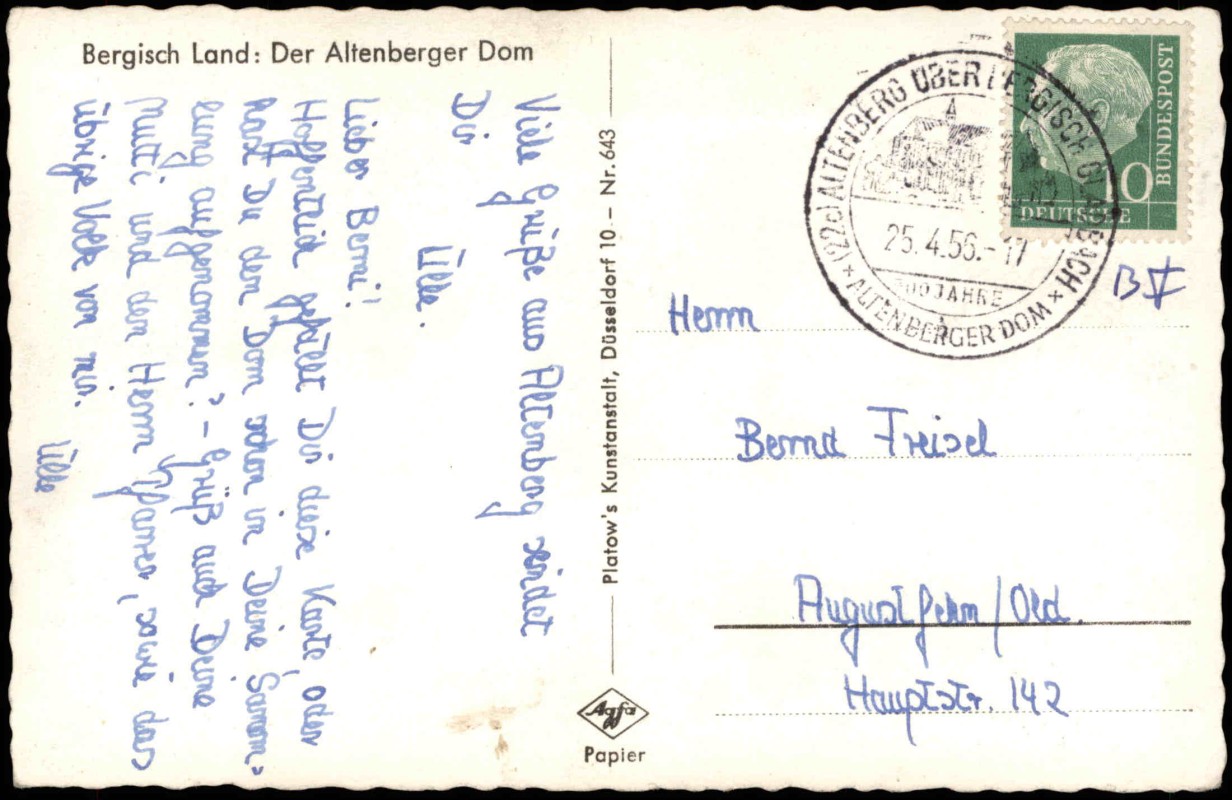 Bergisch Land: Der Altenberger Dom
Viele Grüße aus Altenberg sendet
Dir
Ulle.
Lieber Bernd!
Hoffentlich gefällt Dir diese Karte, oder
hast Du den Dom schon in Deine Samm-
lung aufgenommen? – Grüß auch Deine
Mutti und den Herrn Pfarrer, sowie das
übrige Volk von mir.
Ulle
Platow's Kunstanstalt, Düsseldorf 10 – Nr. 643
Agfa
Papier
(22c) ALTENBERG ÜBER BERGISCH GLADBACH
25.4.56.-17
JAHRE
ALTENBERGER DOM
DEUTSCHE
BUNDESPOST
Herrn
Bernd Freisel
Augustfehn/Old.
Hauptstr. 142